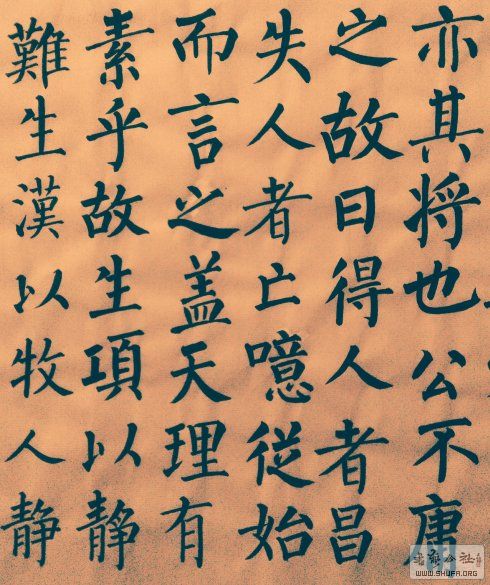 亦其将也公不庸
之故曰得人者昌
失人者亡噫從始
而言之盖天理有
素乎故生項以靜
難生漢以牧人靜
WWW.SHUFA.ORG